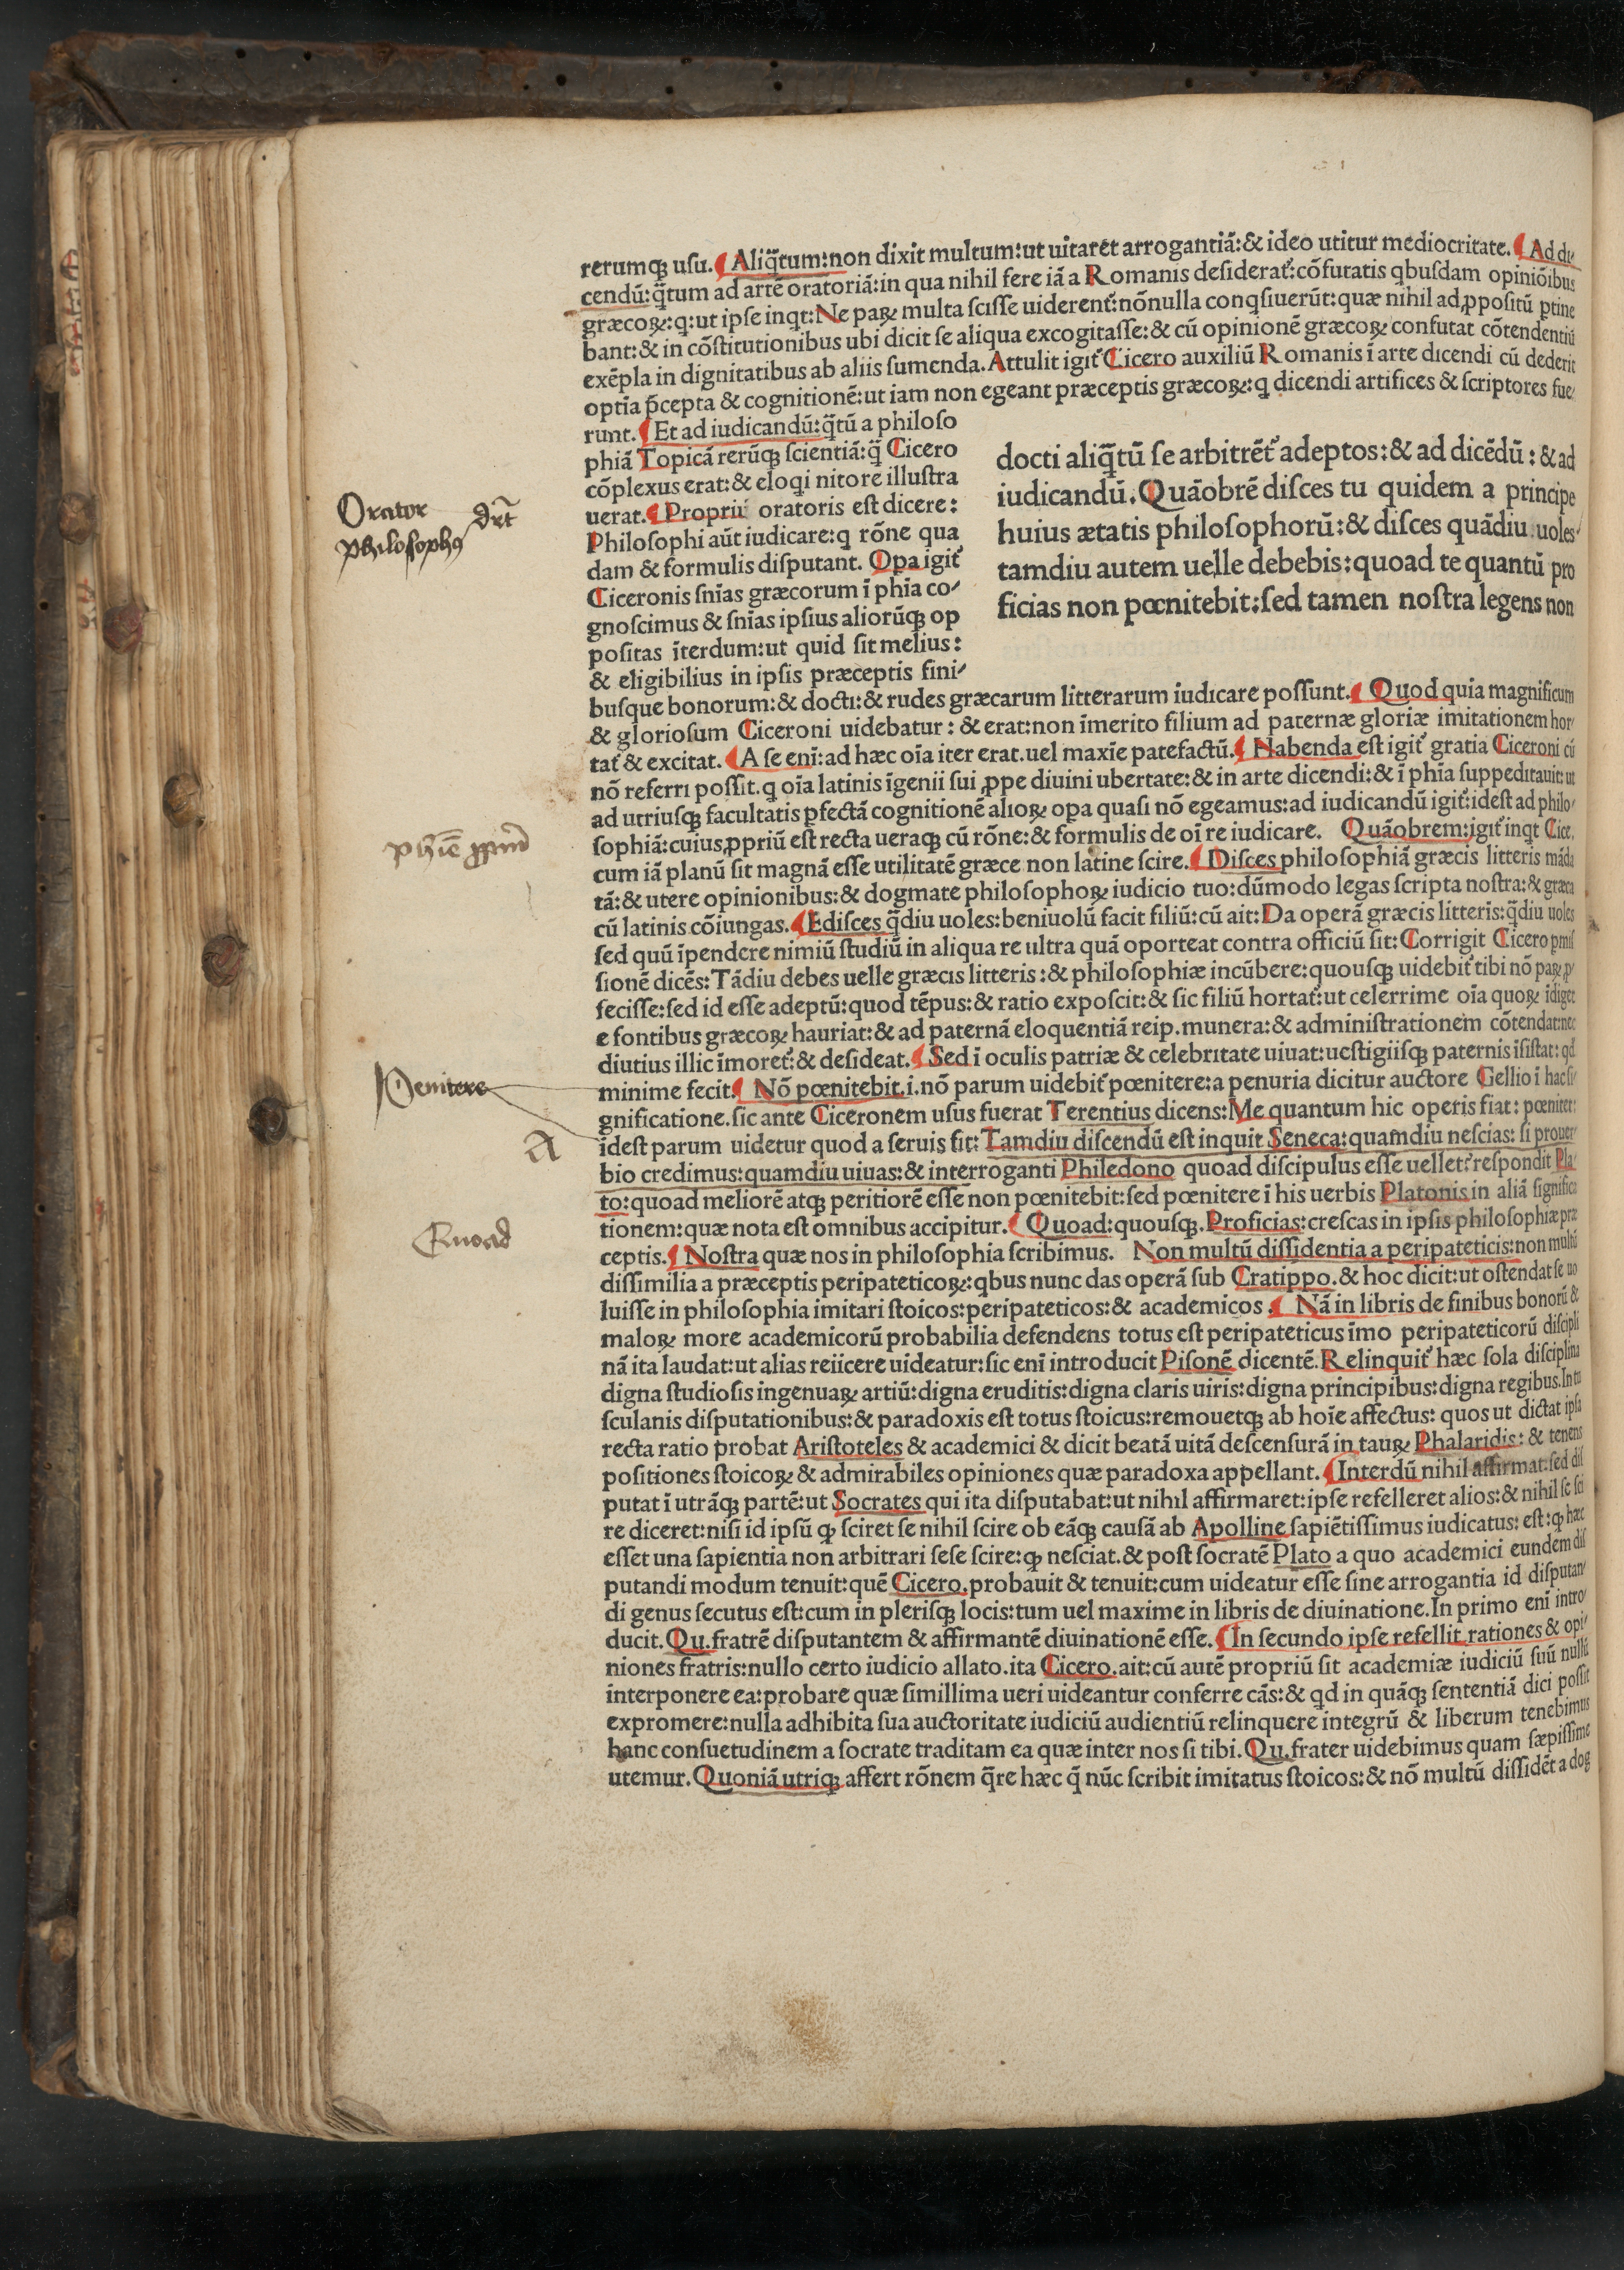 rerumqꝫ uſu. ¶ Aliq̄tum: non dixit multum: ut uitarēt arrogantiã: & ideo utitur mediocritate. ¶ Ad di⸗
cendũ: q̄tum ad artē oratoriã: in qua nihil fere iã a Romanis deſiderat᷑: cõfutatis qbuſdam opiniõibus
græcoꝝ: q: ut ipſe inqt: Ne paꝝ multa ſciſſe uiderent᷑: nõnulla conqſiuerũt: quæ nihil ad ꝓpoſitũ ꝑtine
bant: & in cõſtitutionibus ubi dicit ſe aliqua excogitaſſe: & cũ opinionē græcoꝝ confutat cõtendentiũ
exēpla in dignitatibus ab aliis ſumenda. Attulit igit᷑ Cicero auxiliũ Romanis ĩ arte dicendi cũ dederit
optĩa p̄cepta & cognitionē: ut iam non egeant præceptis græcoꝝ: q dicendi artifices & ſcriptores fue⸗
runt. ¶ Et ad iudicandũ: q̄tũ a philoſo
phiã Topicã rerũqꝫ ſcientiã: q̄ Cicero
cõplexus erat: & eloqi nitore illuſtra
uerat. ¶ Propriũ oratoris eſt dicere:
Philoſophi aũt iudicare: q rõne qua
dam & formulis diſputant. Opa igit᷑
Ciceronis ſnĩas græcorum ĩ phĩa co⸗
gnoſcimus & ſnĩas ipſius aliorũqꝫ op
poſitas ĩterdum: ut quid ſit melius:
& eligibilius in ipſis præceptis fini⸗
docti aliq̄tũ ſe arbitrēt᷑ adeptos: & ad dicēdũ: & ad
iudicandũ. Quãobrē diſces tu quidem a principe
huius ætatis philoſophorũ: & diſces quãdiu uoles⸗
tamdiu autem uelle debebis: quoad te quantũ pro
ficias non pœnitebit: ſed tamen noſtra legens non
Orator
Philoſophꝰ drñt
buſque bonorum: & docti: & rudes græcarum litterarum iudicare poſſunt. ¶ Quod quia magnificum
& glorioſum Ciceroni uidebatur: & erat: non ĩmerito filium ad paternæ gloriæ imitationem hor⸗
tat᷑ & excitat. ¶ A ſe enĩ: ad hæc oĩa iter erat. uel maxĩe patefactũ. ¶ Habenda eſt igit᷑ gratia Ciceroni cũ
nõ referri poſſit. q oĩa latinis ĩgenii ſui ꝓpe diuini ubertate: & in arte dicendi: & ĩ phĩa ſuppeditauit: ut
ad utriuſqꝫ facultatis ꝑfectã cognitionē alioꝝ opa quaſi nõ egeamus: ad iudicandũ igit᷑: ideſt ad philo⸗
ſophiã: cuius ꝓpriũ eſt recta ueraqꝫ cũ rõne: & formulis de oĩ re iudicare. Quãobrem: igit᷑ inqt Cice.
cum iã planũ ſit magnã eſſe utilitatē græce non latine ſcire. ¶ Diſces philoſophiã græcis litteris mãda
tã: & utere opinionibus: & dogmate philoſophoꝝ iudicio tuo: dũmodo legas ſcripta noſtra: & græca
cũ latinis cõiungas. ¶ Ediſces q̄diu uoles: beniuolũ facit filiũ: cũ ait: Da operã græcis litteris: q̄diu uoles
ſed quũ ĩpendere nimiũ ſtudiũ in aliqua re ultra quã oporteat contra officiũ ſit: Corrigit Cicero ꝑmiſ
ſionē dicēs: Tãdiu debes uelle græcis litteris: & philoſophiæ incũbere: quouſqꝫ uidebit᷑ tibi nõ paꝝ ꝓ⸗
feciſſe: ſed id eſſe adeptũ: quod tēpus: & ratio expoſcit: & ſic filiũ hortat᷑: ut celerrime oĩa quoꝝ ĩdiget
e fontibus græcoꝝ hauriat: & ad paternã eloquentiã reip. munera: & adminiſtrationem cõtendat: nec
diutius illic ĩmoret᷑: & deſideat. ¶ Sed ĩ oculis patriæ & celebritate uiuat: ueſtigiiſqꝫ paternis ĩſiſtat: qd
Penitere
minime fecit. ¶ Nõ pœnitebit. i. nõ parum uidebit᷑ pœnitere: a penuria dicitur auctore Gellio ĩ hac ſi⸗
gnificatione. ſic ante Ciceronem uſus fuerat Terentius dicens: Me quantum hic operis fiat: pœnitet:
A
ideſt parum uidetur quod a ſeruis fit: Tamdiu diſcendũ eſt inquit Seneca: quamdiu neſcias: ſi prouer⸗
bio credimus: quamdiu uiuas: & interroganti Philedono quoad diſcipulus eſſe uellet: reſpondit Pla⸗
to: quoad meliorē atqꝫ peritiorē eſſe non pœnitebit: ſed pœnitere ĩ his uerbis Platonis in aliã ſignifica
tionem: quæ nota eſt omnibus accipitur. ¶ Quoad: quouſqꝫ. Proficias: creſcas in ipſis philoſophiæ præ
Quoad
ceptis. ¶ Noſtra quæ nos in philoſophia ſcribimus. Non multũ diſſidentia a peripateticis: non multũ
diſſimilia a præceptis peripateticoꝝ: qbus nunc das operã ſub Cratippo. & hoc dicit: ut oſtendat ſe uo
luiſſe in philoſophia imitari ſtoicos: peripateticos: & academicos. ¶ Nã in libris de finibus bonorũ &
maloꝝ more academicorũ probabilia defendens totus eſt peripateticus ĩmo peripateticorũ diſcipli
nã ita laudat: ut alias reiicere uideatur: ſic enĩ introducit Piſonē dicentē. Relinquit᷑ hæc ſola diſciplina
digna ſtudioſis ingenuaꝝ artiũ: digna eruditis: digna claris uiris: digna principibus: digna regibus. In tu
ſculanis diſputationibus: & paradoxis eſt totus ſtoicus: remouetqꝫ ab hoĩe affectus: quos ut dictat ipſa
recta ratio probat Ariſtoteles & academici & dicit beatã uitã deſcenſurã in tauꝝ Phalaridis: & tenens
poſitiones ſtoicoꝝ & admirabiles opiniones quæ paradoxa appellant. ¶ Interdũ nihil affirmat: ſed diſ
putat ĩ utrãqꝫ partē: ut Socrates qui ita diſputabat: ut nihil affirmaret: ipſe refelleret alios: & nihil ſe ſci
re diceret: niſi id ipſũ ꝙ ſciret ſe nihil ſcire ob eãqꝫ cauſã ab Apolline ſapiētiſſimus iudicatus: eſt: ꝙ hæc
eſſet una ſapientia non arbitrari ſeſe ſcire: ꝙ neſciat. & poſt ſocratē Plato a quo academici eundem diſ
putandi modum tenuit: quē Cicero. probauit & tenuit: cum uideatur eſſe ſine arrogantia id diſputan⸗
di genus ſecutus eſt: cum in pleriſqꝫ locis: tum uel maxime in libris de diuinatione. In primo enĩ intro⸗
ducit. Qu. fratrē diſputantem & affirmantē diuinationē eſſe. ¶ In ſecundo ipſe refellit rationes & opi⸗
niones fratris: nullo certo iudicio allato. ita Cicero. ait: cũ autē propriũ ſit academiæ iudiciũ ſuũ nullũ
interponere ea: probare quæ ſimillima ueri uideantur conferre cãs: & qd in quãqꝫ ſententiã dici poſſit
expromere: nulla adhibita ſua auctoritate iudiciũ audientiũ relinquere integrũ & liberum tenebimus
hanc conſuetudinem a ſocrate traditam ea quæ inter nos ſi tibi. Qu. frater uidebimus quam ſæpiſſime
utemur. Quoniã utriqꝫ affert rõnem q̄re hæc q̄ nũc ſcribit imitatus ſtoicos: & nõ multũ diſſidēt a dog